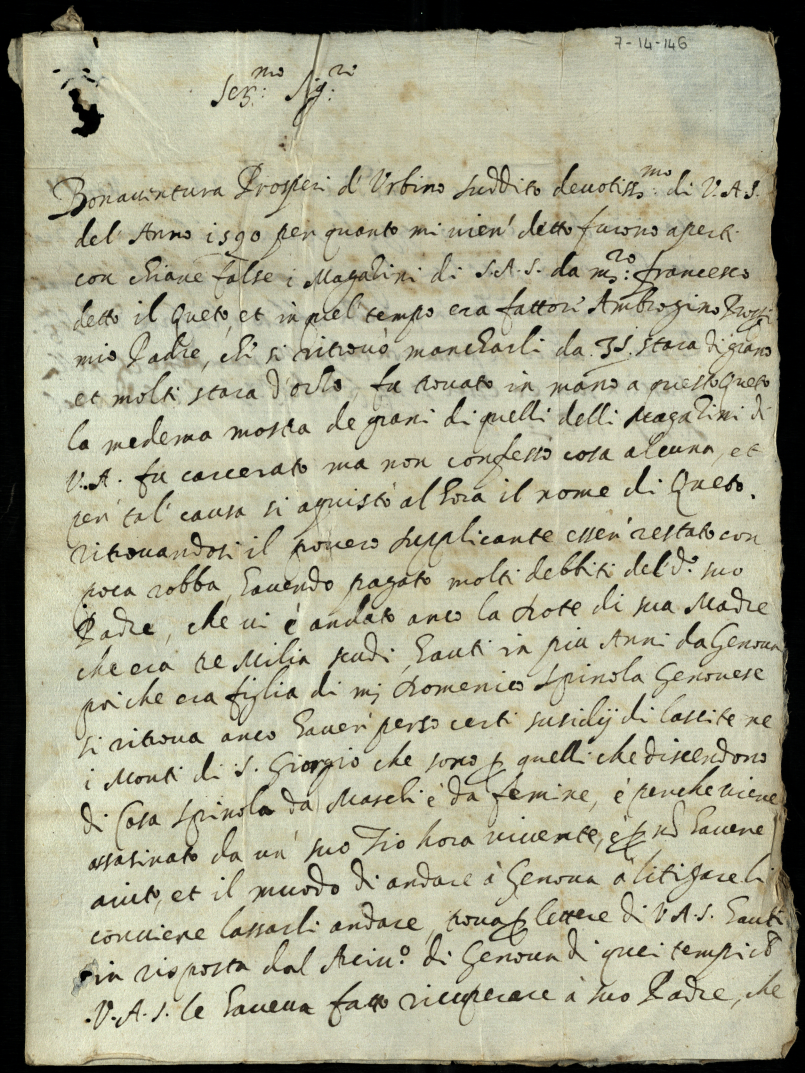 7-14-146
Ser.mo Sig.re
Bonaventura Prosperi d'Urbino suddito devotiss.mo di V.A.S.
del' Anno 1590 per quanto mi vien' detto furono aperti
con chiave false i Magazini di S.A.S. da m.ro francesco
detto il Queto, et in quel tempo era fattor' Ambrogino Prosp.i
mio Padre, chi si ritrovò mancharli da 35. stara di grano
et molti stara d'orzo, fu trovato in mano a questo Queto
la medema mostra de grani di quelli delli Magazini di
V.A. fu carcerato ma non confessò cosa alcuna, et
per' tal' causa si aquistò al hora il nome di Queto.
ritrovandosi il povero supplicante esser' restato con
poca robba, havendo pagato molti debbiti del d.o suo
Padre, che vi è andato anco la Dote di sua Madre
che era tre Milia scudi, hauti in piu Anni da Genova
poi che era figlia di m; Domenico Spinola Genovese
si ritrova anco haver' perso certi susidij di lascite ne
i Monti di S. Giorgio che sono p quelli che discendono
di Casa Spinola da Maschi è da femine, è perche viene
assasinato da un' suo Zio hora vivente, è p nō havere
aiuto, et il muodo di andare à Genova à litigare li
conviene lassarli andare, trova p lettere di V.A.S. hauti
in risposta dal Arciv.o di Genova di quei tempi chē
V.A.S. le haveva fatto ricuperare à suo Padre, che